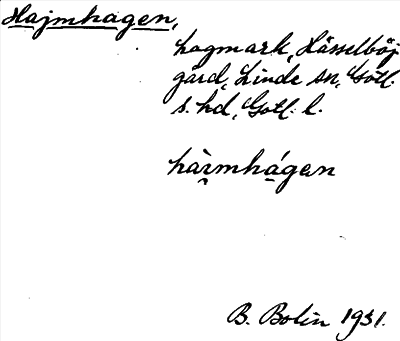 Hajmhagen,
hagmark, Hässelböj
gård, Linde sn, Gotl.
s. hd, Gotl. l.
hàı̯mhágen
B. Bolin 1931.